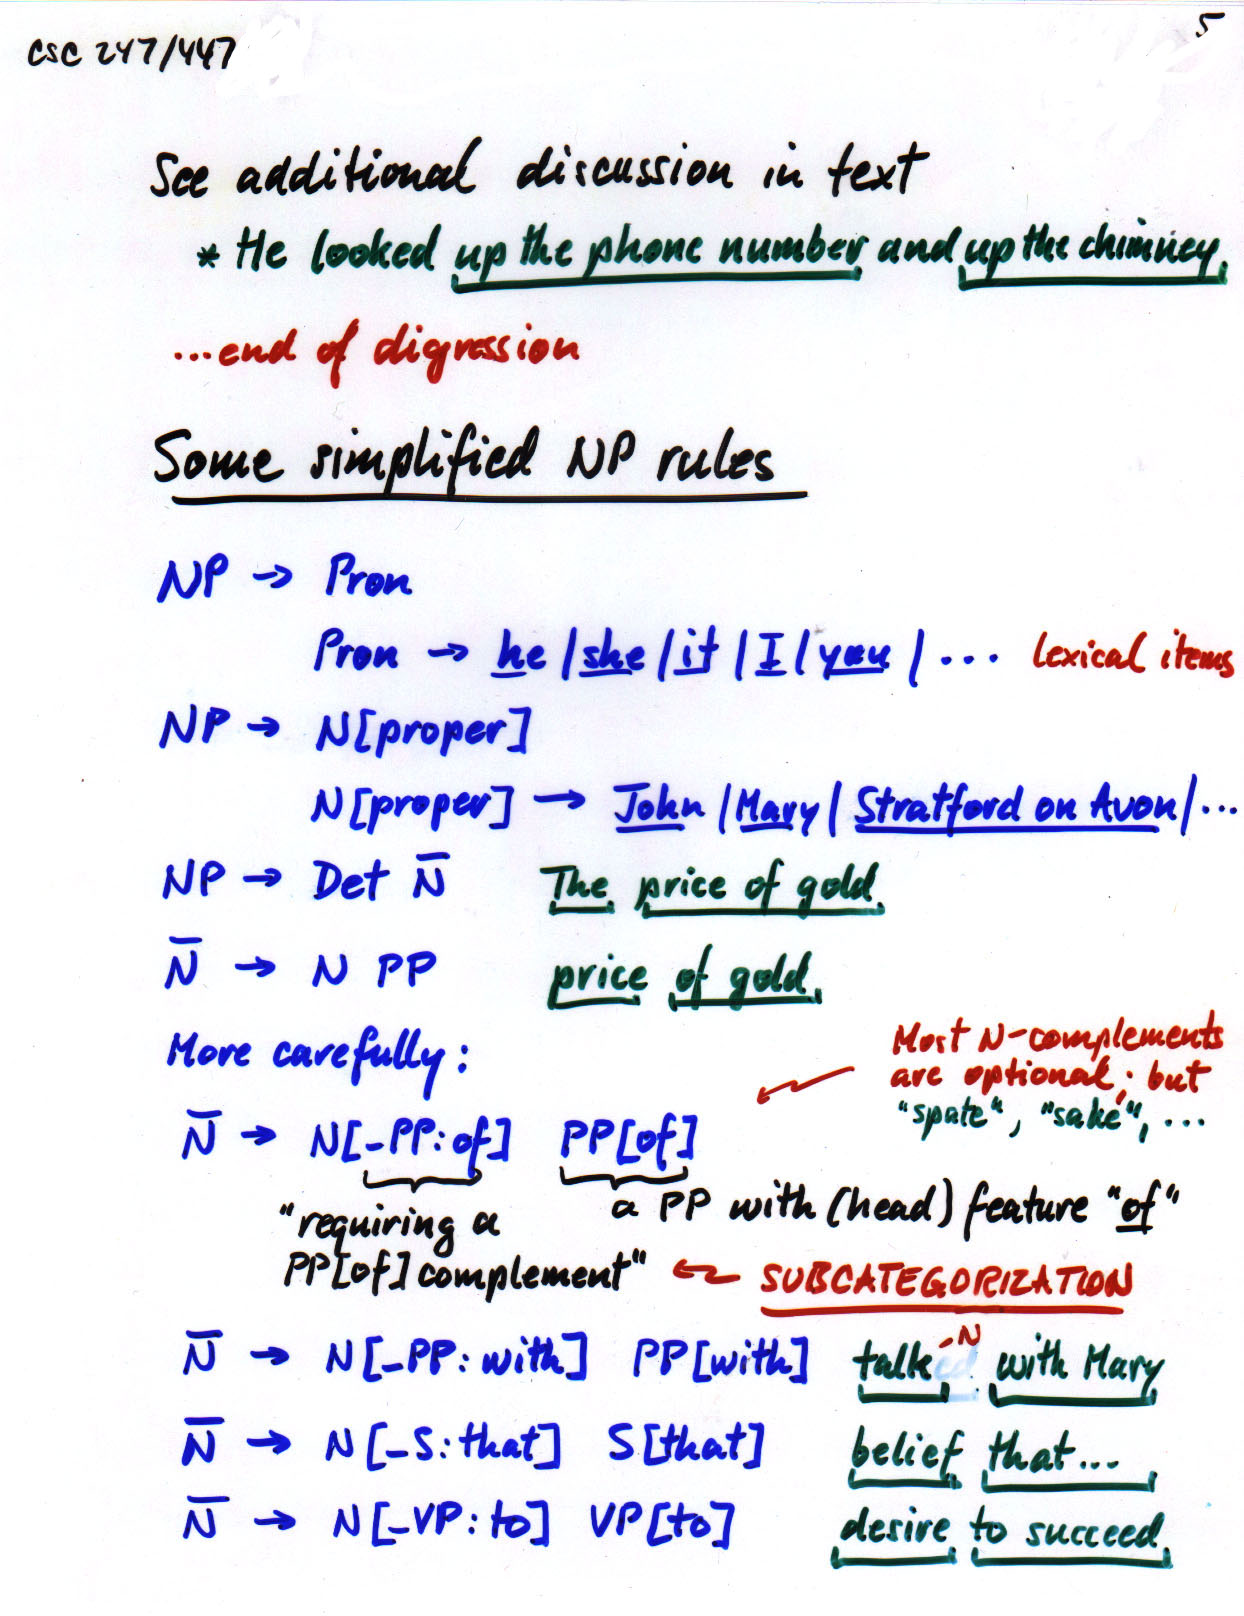 5
CSC 247/447
See additional discussion in text
* He looked up the phone number and up the chimney
...end of digression
Some simplified NP rules
NP → Pron
Pron → he | she | it | I | you | ... lexical items
NP → N[proper]
N[proper] → John | Mary | Stratford on Avon | ...
NP → Det N̅ The price of gold
N̅ → N PP price of gold
More carefully:
Most N-complements
are optional; but
"spate", "sake", ...
N̅ → N[_PP:of] PP[of]
"requiring a a PP with (head) feature "of"
PP[of] complement" ← SUBCATEGORIZATION
N̅ → N[_PP:with] PP[with] talk -N with Mary
N̅ → N[_S:that] S[that] belief that...
N̅ → N[_VP:to] VP[to] desire to succeed